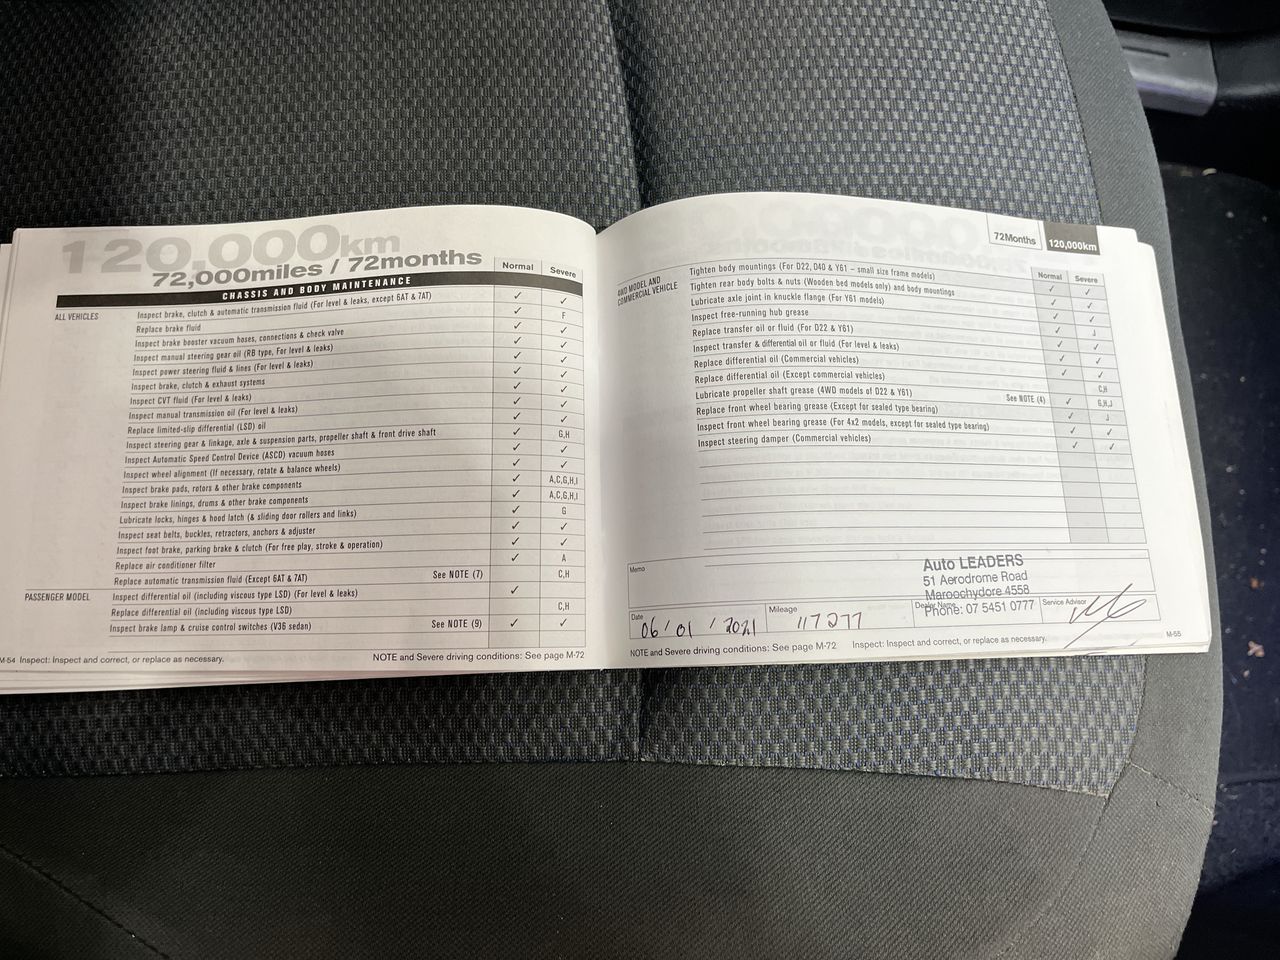 120,000km
72,000miles / 72months
Normal Severe
CHASSIS AND BODY MAINTENANCE
ALL VEHICLES
Inspect brake, clutch & automatic transmission fluid (For level & leaks, except 6AT & 7AT) ✓ ✓
Replace brake fluid ✓ F
Inspect brake booster vacuum hoses, connections & check valve ✓ ✓
Inspect manual steering gear oil (RB type, For level & leaks) ✓ ✓
Inspect power steering fluid & lines (For level & leaks) ✓ ✓
Inspect brake, clutch & exhaust systems ✓ ✓
Inspect CVT fluid (For level & leaks) ✓ ✓
Inspect manual transmission oil (For level & leaks) ✓ ✓
Replace limited-slip differential (LSD) oil ✓ ✓
Inspect steering gear & linkage, axle & suspension parts, propeller shaft & front drive shaft ✓ G,H
Inspect Automatic Speed Control Device (ASCD) vacuum hoses ✓ ✓
Inspect wheel alignment (If necessary, rotate & balance wheels) ✓ ✓
Inspect brake pads, rotors & other brake components ✓ A,C,G,H,I
Inspect brake linings, drums & other brake components ✓ A,C,G,H,I
Lubricate locks, hinges & hood latch (& sliding door rollers and links) ✓ G
Inspect seat belts, buckles, retractors, anchors & adjuster ✓ ✓
Inspect foot brake, parking brake & clutch (For free play, stroke & operation) ✓ ✓
Replace air conditioner filter ✓ A
Replace automatic transmission fluid (Except 6AT & 7AT) See NOTE (7) C,H
PASSENGER MODEL
Inspect differential oil (including viscous type LSD) (For level & leaks) ✓
Replace differential oil (including viscous type LSD) C,H
Inspect brake lamp & cruise control switches (V36 sedan) See NOTE (9) ✓ ✓
M-54 Inspect: Inspect and correct, or replace as necessary.
NOTE and Severe driving conditions: See page M-72
72Months 120,000km
Normal Severe
4WD MODEL AND
COMMERCIAL VEHICLE
Tighten body mountings (For D22, D40 & Y61 – small size frame models) ✓ ✓
Tighten rear body bolts & nuts (Wooden bed models only) and body mountings ✓ ✓
Lubricate axle joint in knuckle flange (For Y61 models) ✓ ✓
Inspect free-running hub grease ✓ J
Replace transfer oil or fluid (For D22 & Y61) ✓ ✓
Inspect transfer & differential oil or fluid (For level & leaks) ✓ ✓
Replace differential oil (Commercial vehicles) ✓ ✓
Replace differential oil (Except commercial vehicles) C,H
Lubricate propeller shaft grease (4WD models of D22 & Y61) See NOTE (4) ✓ G,H,J
Replace front wheel bearing grease (Except for sealed type bearing) ✓ J
Inspect front wheel bearing grease (For 4x2 models, except for sealed type bearing) ✓ ✓
Inspect steering damper (Commercial vehicles) ✓ ✓
Memo
Auto LEADERS
51 Aerodrome Road
Maroochydore 4558
Phone: 07 5451 0777
Date 06/01/2021
Mileage 117277
Dealer Name
Service Advisor
NOTE and Severe driving conditions: See page M-72
Inspect: Inspect and correct, or replace as necessary.
M-55